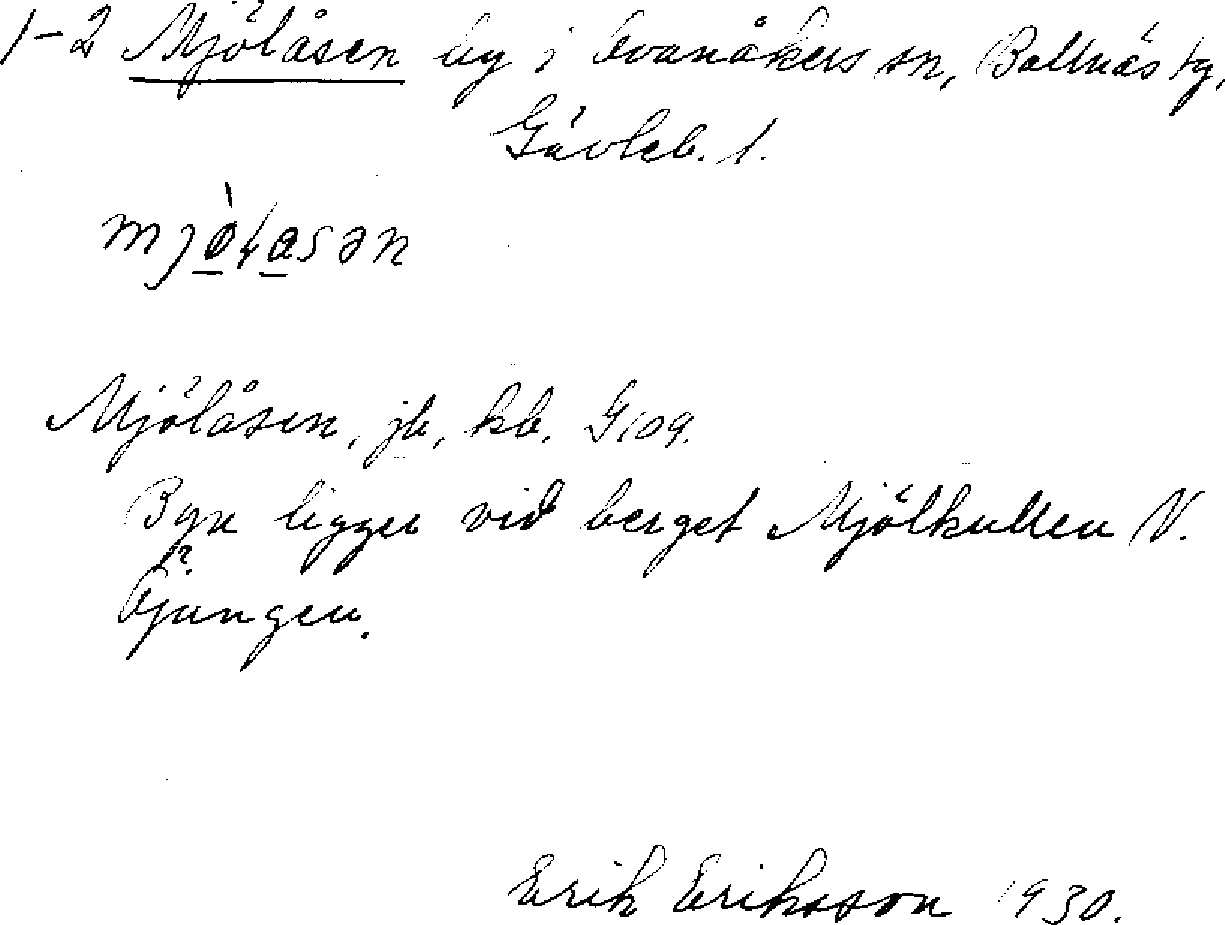 1-2 Mjölåsen by i Ovanåkers sn, Bollnäs tg,
Gävleb. l.
mjòḷasən
Mjölåsen, jb, kb. G109.
Byn ligger vid berget Mjölkullen V.
Öjungen.
Erik Eriksson 1930.